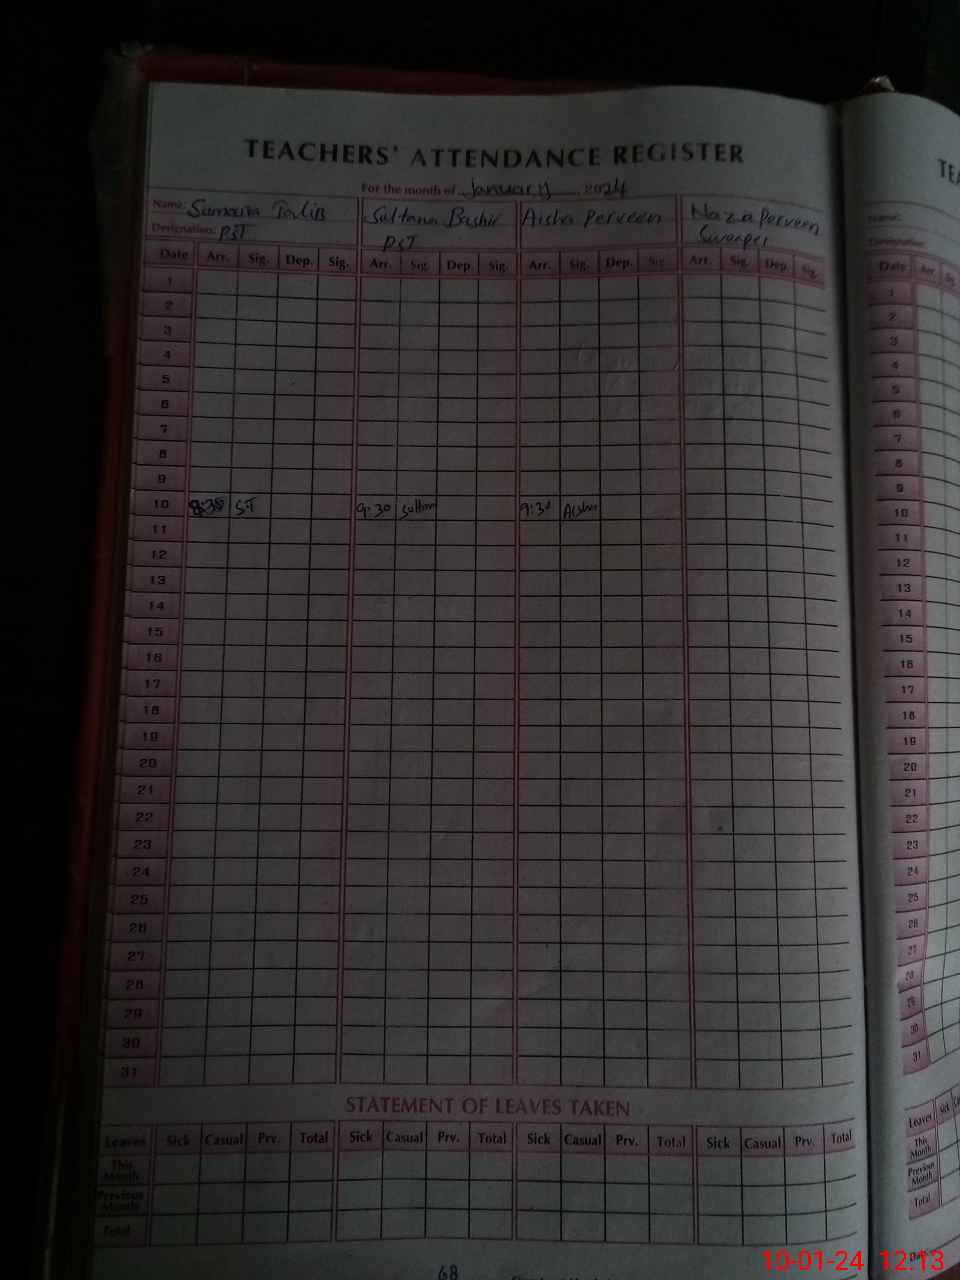 TEACHERS' ATTENDANCE REGISTER
For the month of January 2024
Name: Sultana Bashir Aisha Perveen Naza Perveen
Designation: PST PST Sweeper
Date Arr. Sig. Dep. Sig. Arr. Sig. Dep. Sig. Arr. Sig. Dep. Sig. Arr. Sig. Dep. Sig.
1
2
3
4
5
6
7
8
9
10 8:35 S.T 9:30 Sultan 9:30 Aisha
11
12
13
14
15
16
17
18
19
20
21
22
23
24
25
26
27
28
29
30
31
STATEMENT OF LEAVES TAKEN
Leaves Sick Casual Prv. Total Sick Casual Prv. Total Sick Casual Prv. Total Sick Casual Prv. Total
This Month
Previous Month
Total
68
TEA
Name:
Designation:
Date Arr. Sig.
1
2
3
4
5
6
7
8
9
10
11
12
13
14
15
16
17
18
19
20
21
22
23
24
25
26
27
28
29
30
31
Leaves Sick
This Month
Previous Month
Total
10-01-24 12:13